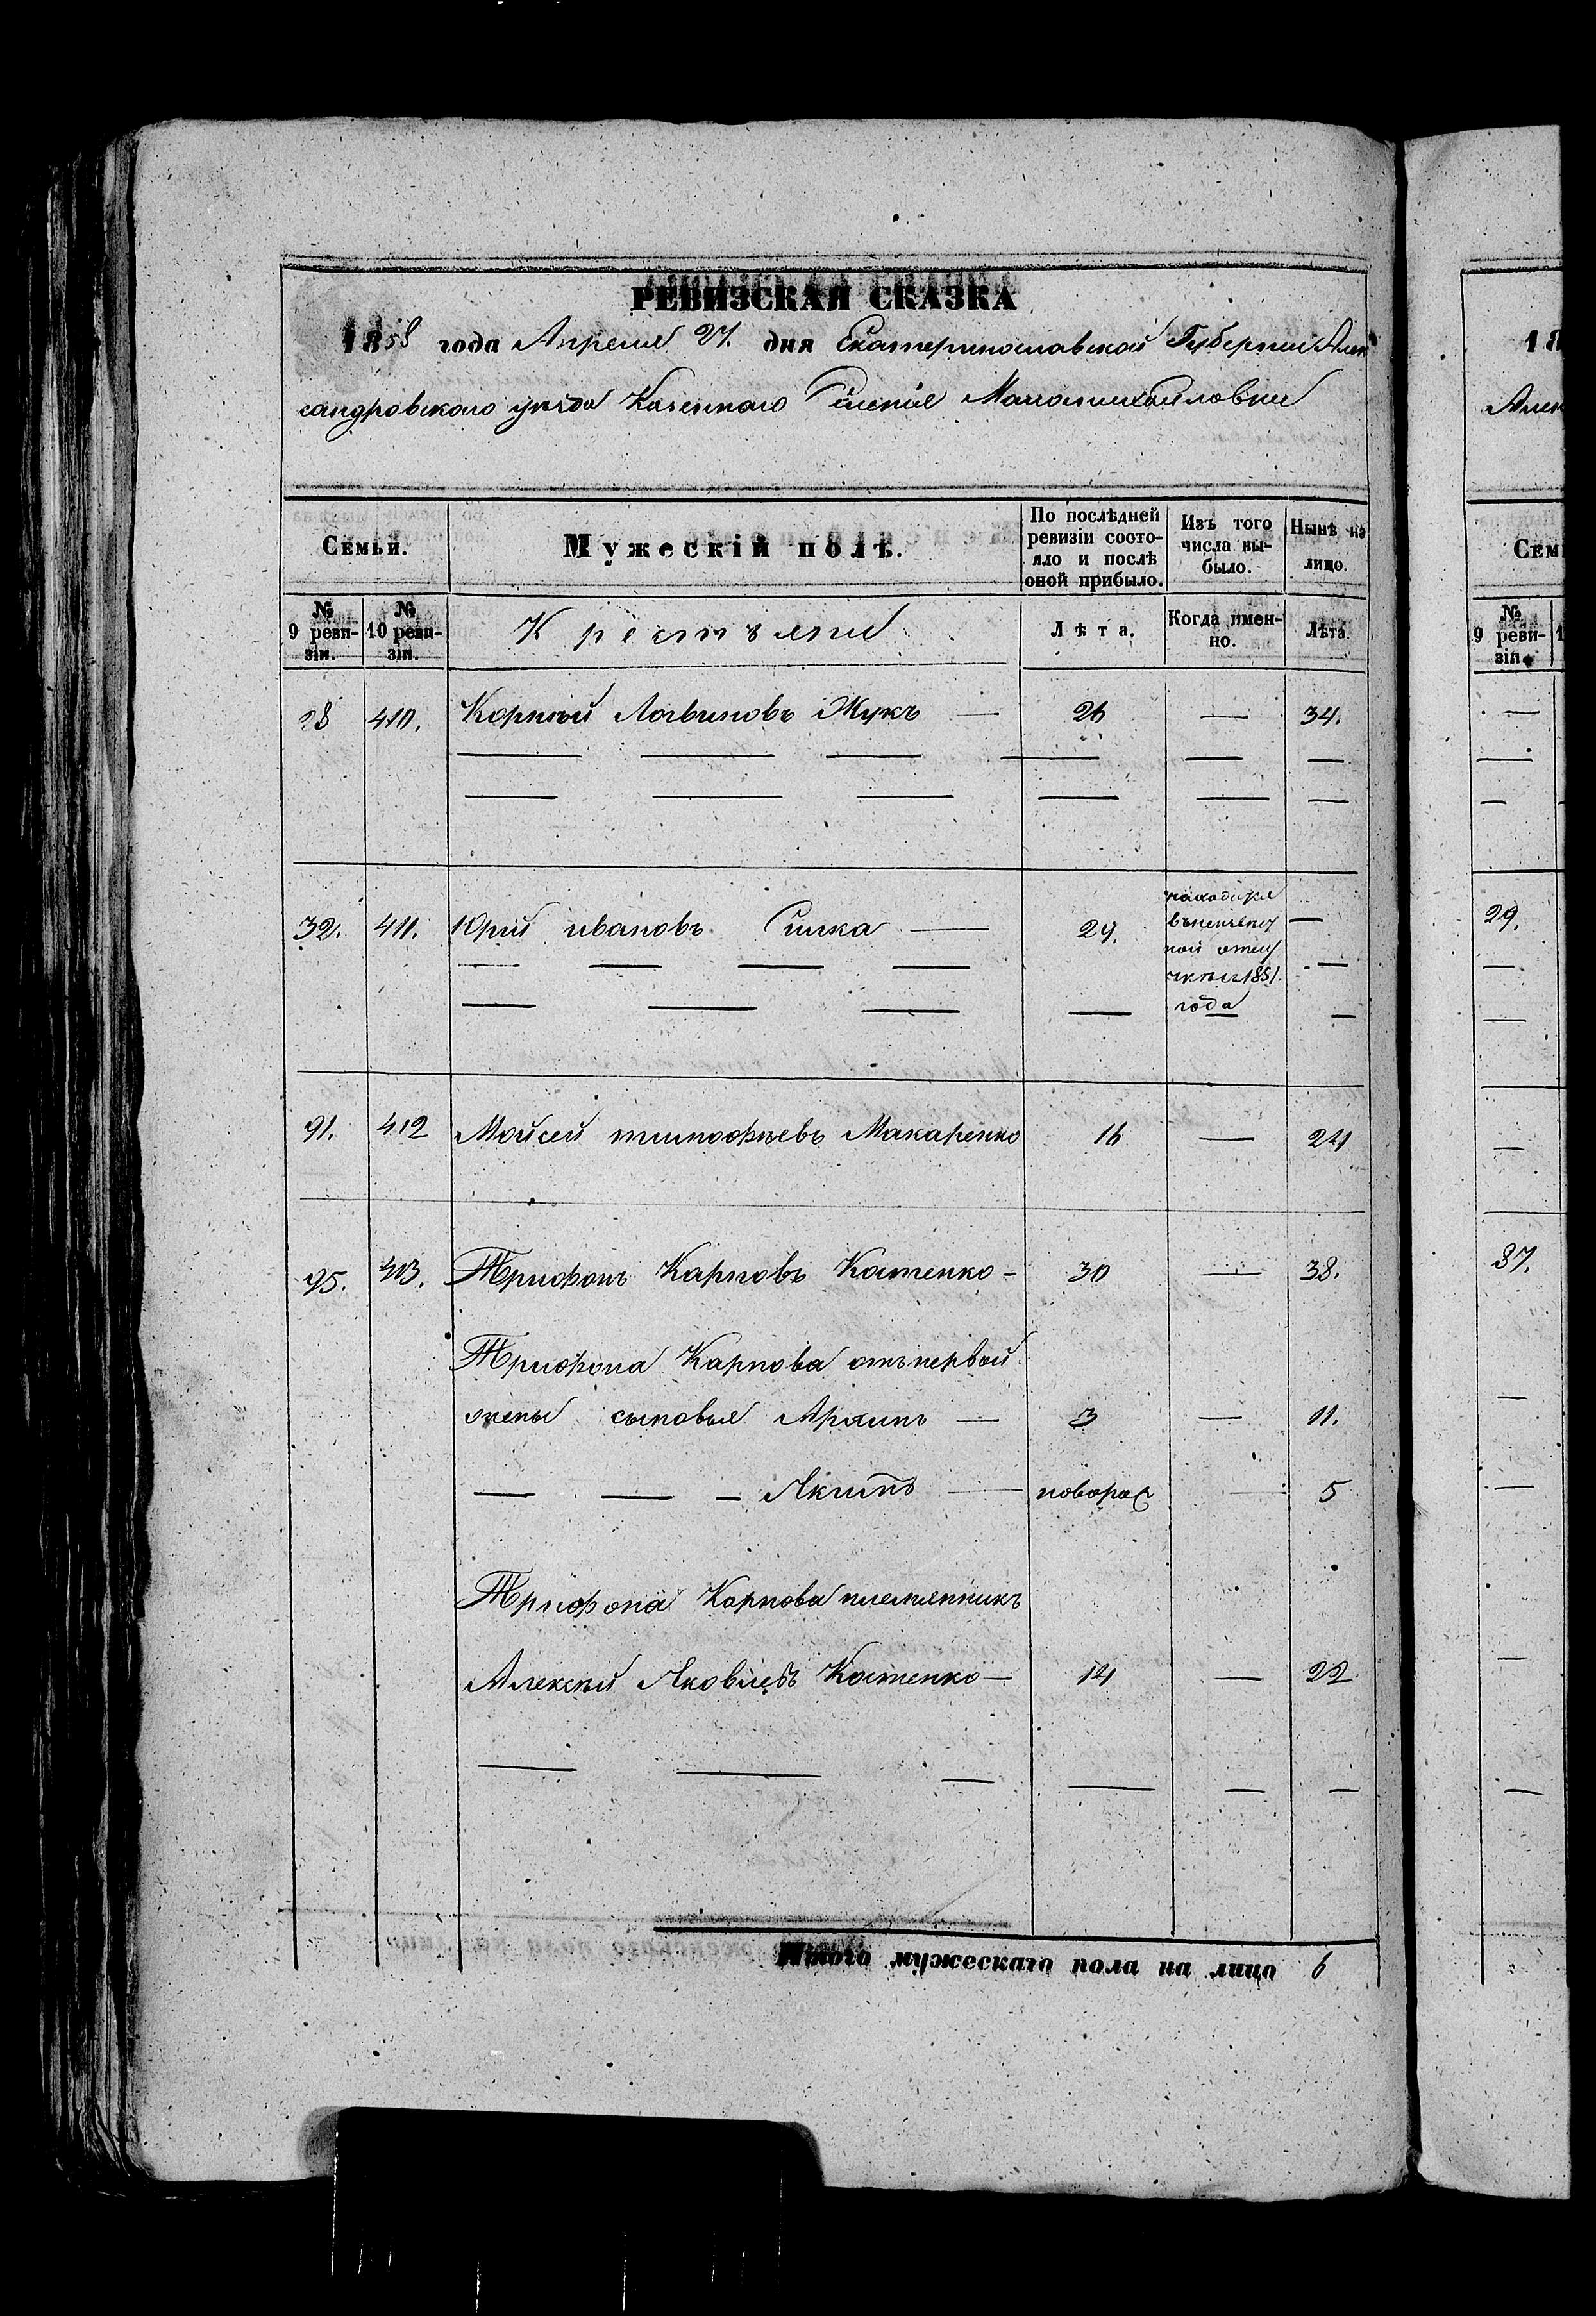 РЕВИЗСКАЯ СКАЗКА
1858 года Апреля 27. дня Екатеринославской Губернии Алек
сандровскаго уезда Казеннаго Селенія Маломихайловки
Семьи. Мужескій полъ. По послѣдней ревизіи состояло и послѣ оной прибыло. Изъ того числа выбыло. Нынѣ на лицо.
№ 9 ревизіи. № 10 ревизіи. Крестьяне Лѣта. Когда именно. Лѣта.
28 410. Корнѣй Логвиновъ Жукъ — 26 — 34.
32. 411. Юрій ивановъ — 29. находится —
года
91. 412 Мойсей тимофѣевъ Макаренко 16 — 24
95. 413. Трифонъ Карповъ Костенко - 30 — 38.
Трифона Карпова отъ первой
жены сыновья Архипъ — 3 — 11.
— — — Акимъ — новорож — 5
Трифона Карпова племянникъ
Алексѣй Яковлевъ Костенко — 14 — 22
Итого мужескаго пола на лицо 6
18
Алек
Семь
№ 9 ревизіи.
29.
37.